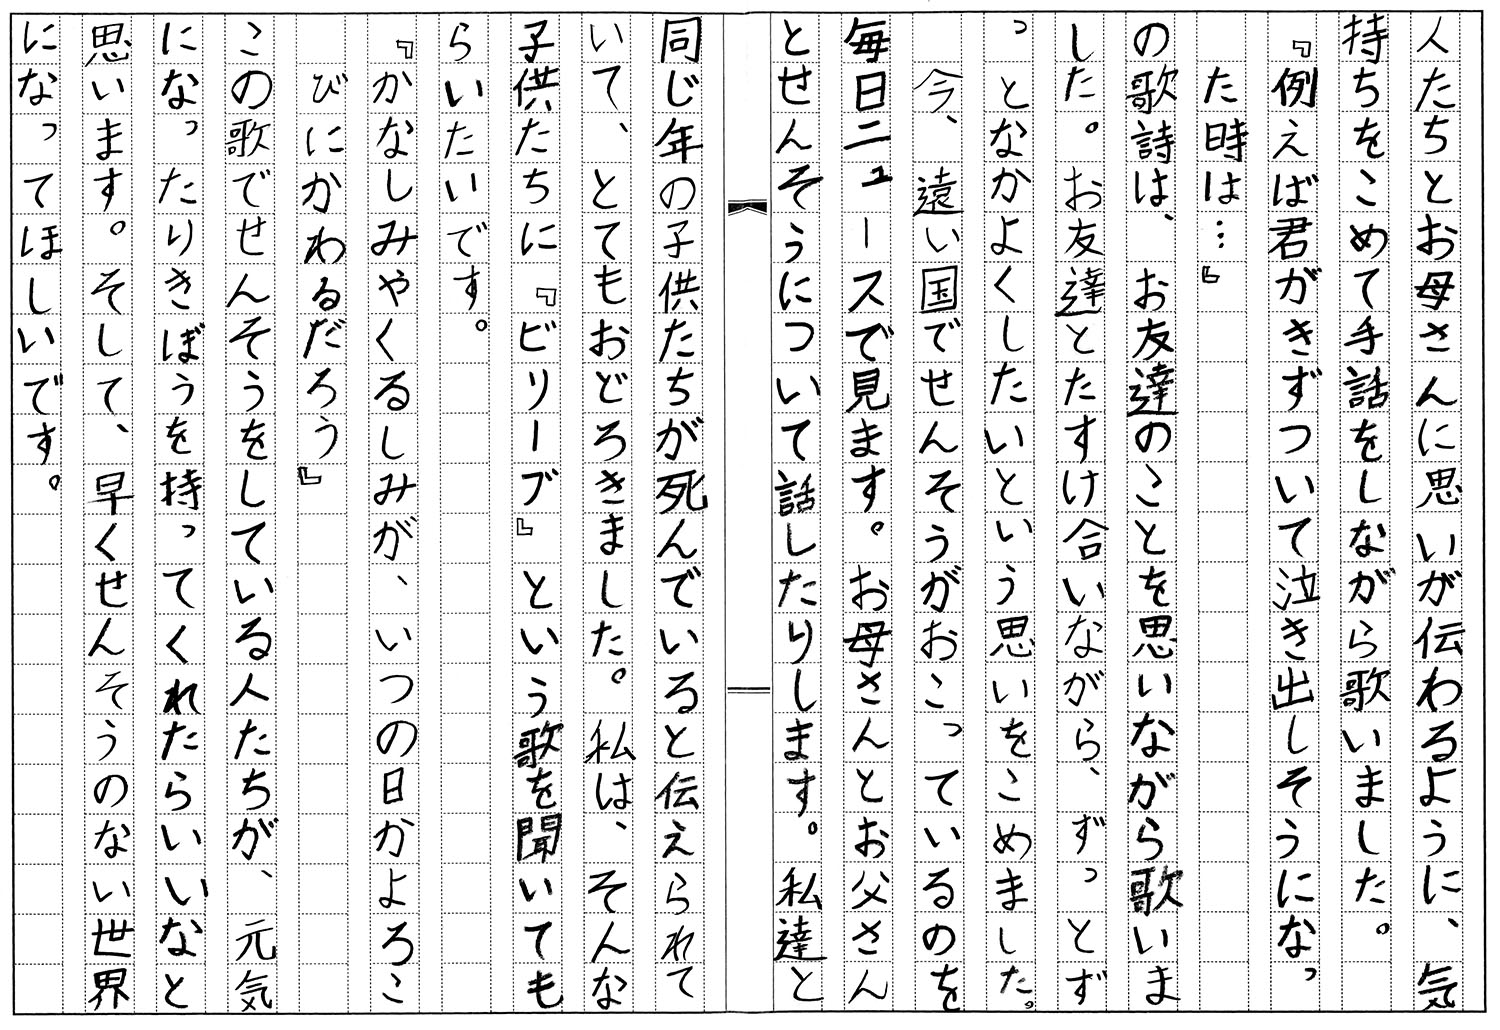 人たちとお母さんに思いが伝わるように、気
持ちをこめて手話をしながら歌いました。
『例えば君がきずついて泣き出しそうになっ
た時は…』
の歌詩は、お友達のことを思いながら歌いま
した。お友達とたすけ合いながら、ずっとず
っとなかよくしたいという思いをこめました。
今、遠い国でせんそうがおこっているのを
毎日ニュースで見ます。お母さんとお父さん
とせんそうについて話したりします。私達と
同じ年の子供たちが死んでいると伝えられて
いて、とてもおどろきました。私は、そんな
子供たちに『ビリーブ』という歌を聞いても
らいたいです。
『かなしみやくるしみが、いつの日かよろこ
びにかわるだろう』
この歌でせんそうをしている人たちが、元気
になったりきぼうを持ってくれたらいいなと
思います。そして、早くせんそうのない世界
になってほしいです。